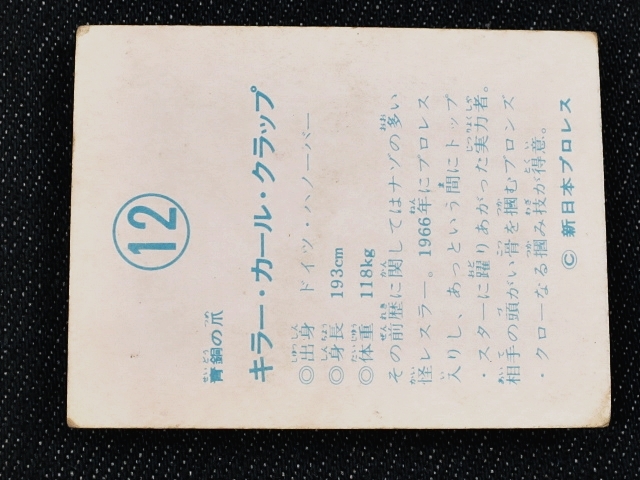 12
青銅の爪
キラー・カール・クラップ
◎出身　ドイツ・ハノーバー
◎身長　193cm
◎体重　118kg
その前歴に関してはナゾの多い
怪レスラー。1966年にプロレス
入りし、あっという間にトップ
・スターに躍りあがった実力者。
相手の頭がい骨を掴むブロンズ
・クローなる掴み技が得意。
© 新日本プロレス